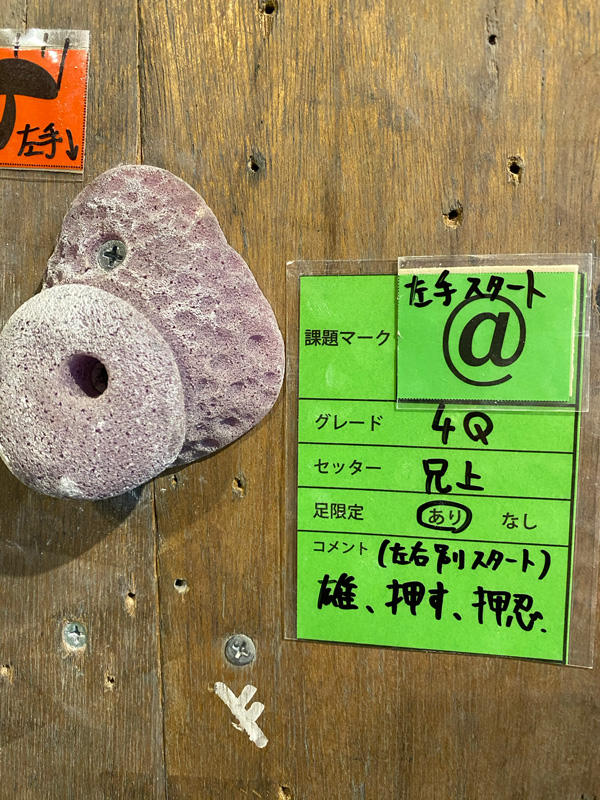 左手↓
左手スタート
課題マーク @
グレード 4Q
セッター 兄上
足限定 あり なし
コメント (左右別スタート)
雄、押す、押忍.